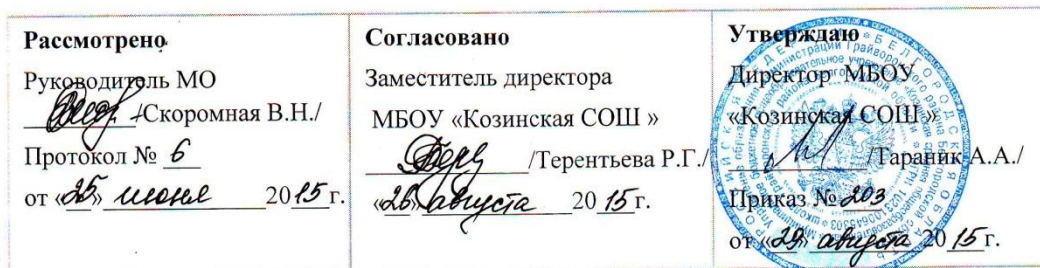 Рассмотрено
Руководитель МО
/Скоромная В.Н./
Протокол № 6
от «25» июня 2015г.
Согласовано
Заместитель директора
МБОУ «Козинская СОШ »
/Терентьева Р.Г./
«26» августа 2015г.
Утверждаю
Директор МБОУ
«Козинская СОШ »
/Тараник А.А./
Приказ № 203
от «29» августа 2015г.